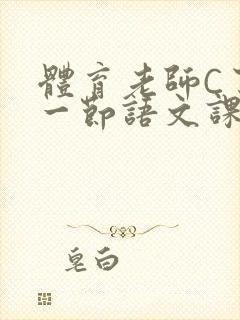 體育老師C
一節語文課
皂白